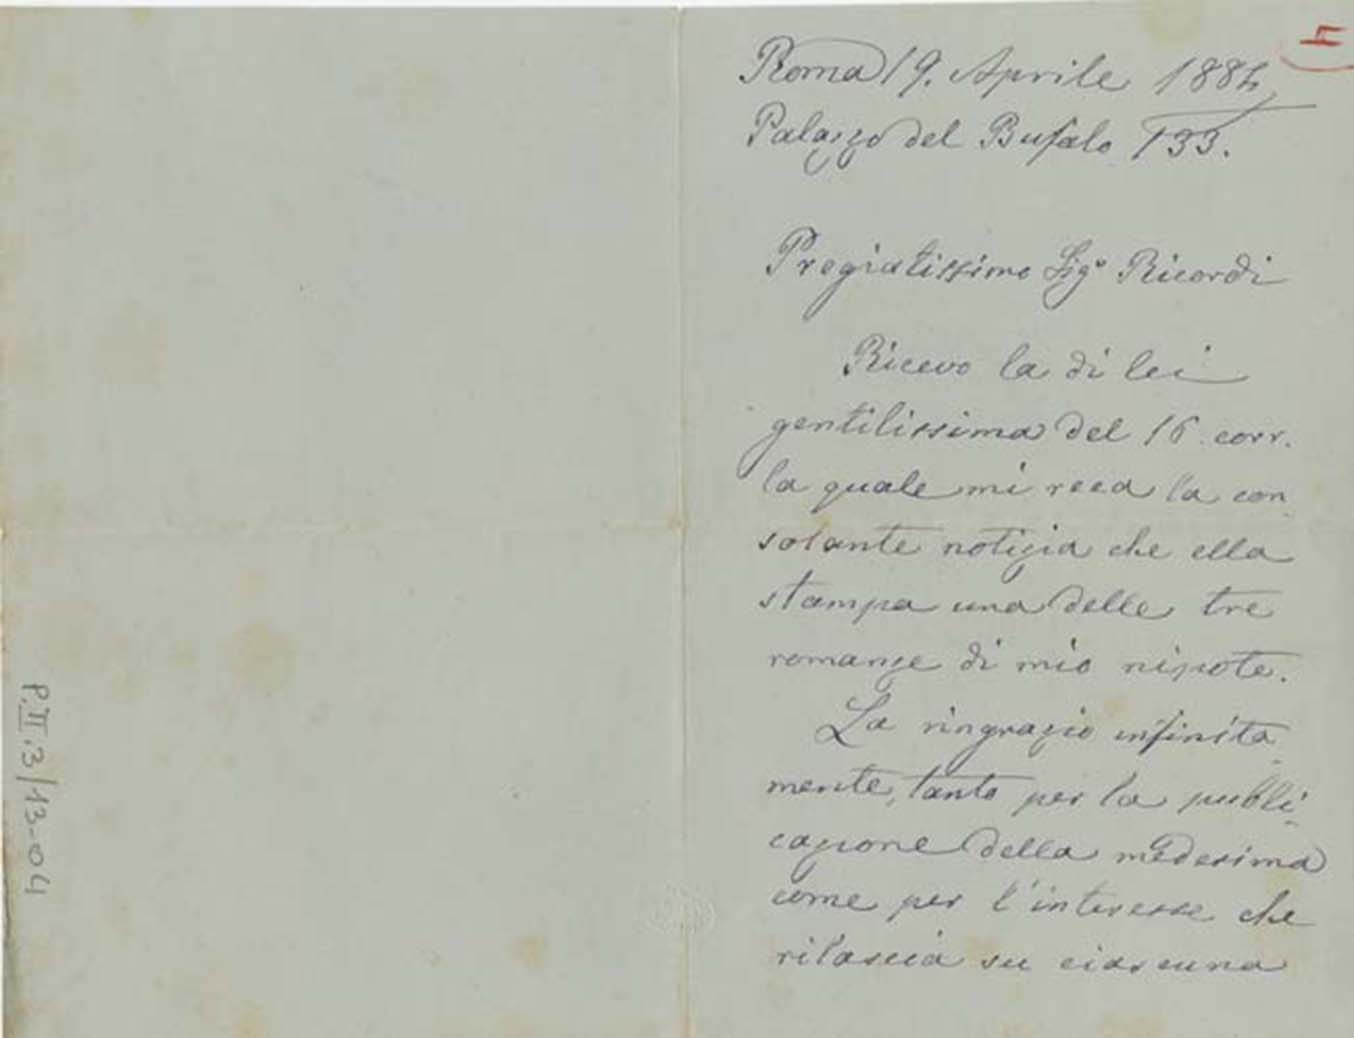 II
Roma 19. Aprile 1884
Palazzo del Bufalo 133.
Pregiatissimo Sigr Ricordi
Ricevo la di lei
gentilissima del 16 corr.
la quale mi reca la con
solante notizia che ella
stampa una delle tre
romanze di mio nipote.
La ringrazio infinita
mente, tanto per la publi
cazione della medesima
come per l'interesse che
rilascia su ciascuna
P.II.3/13-04